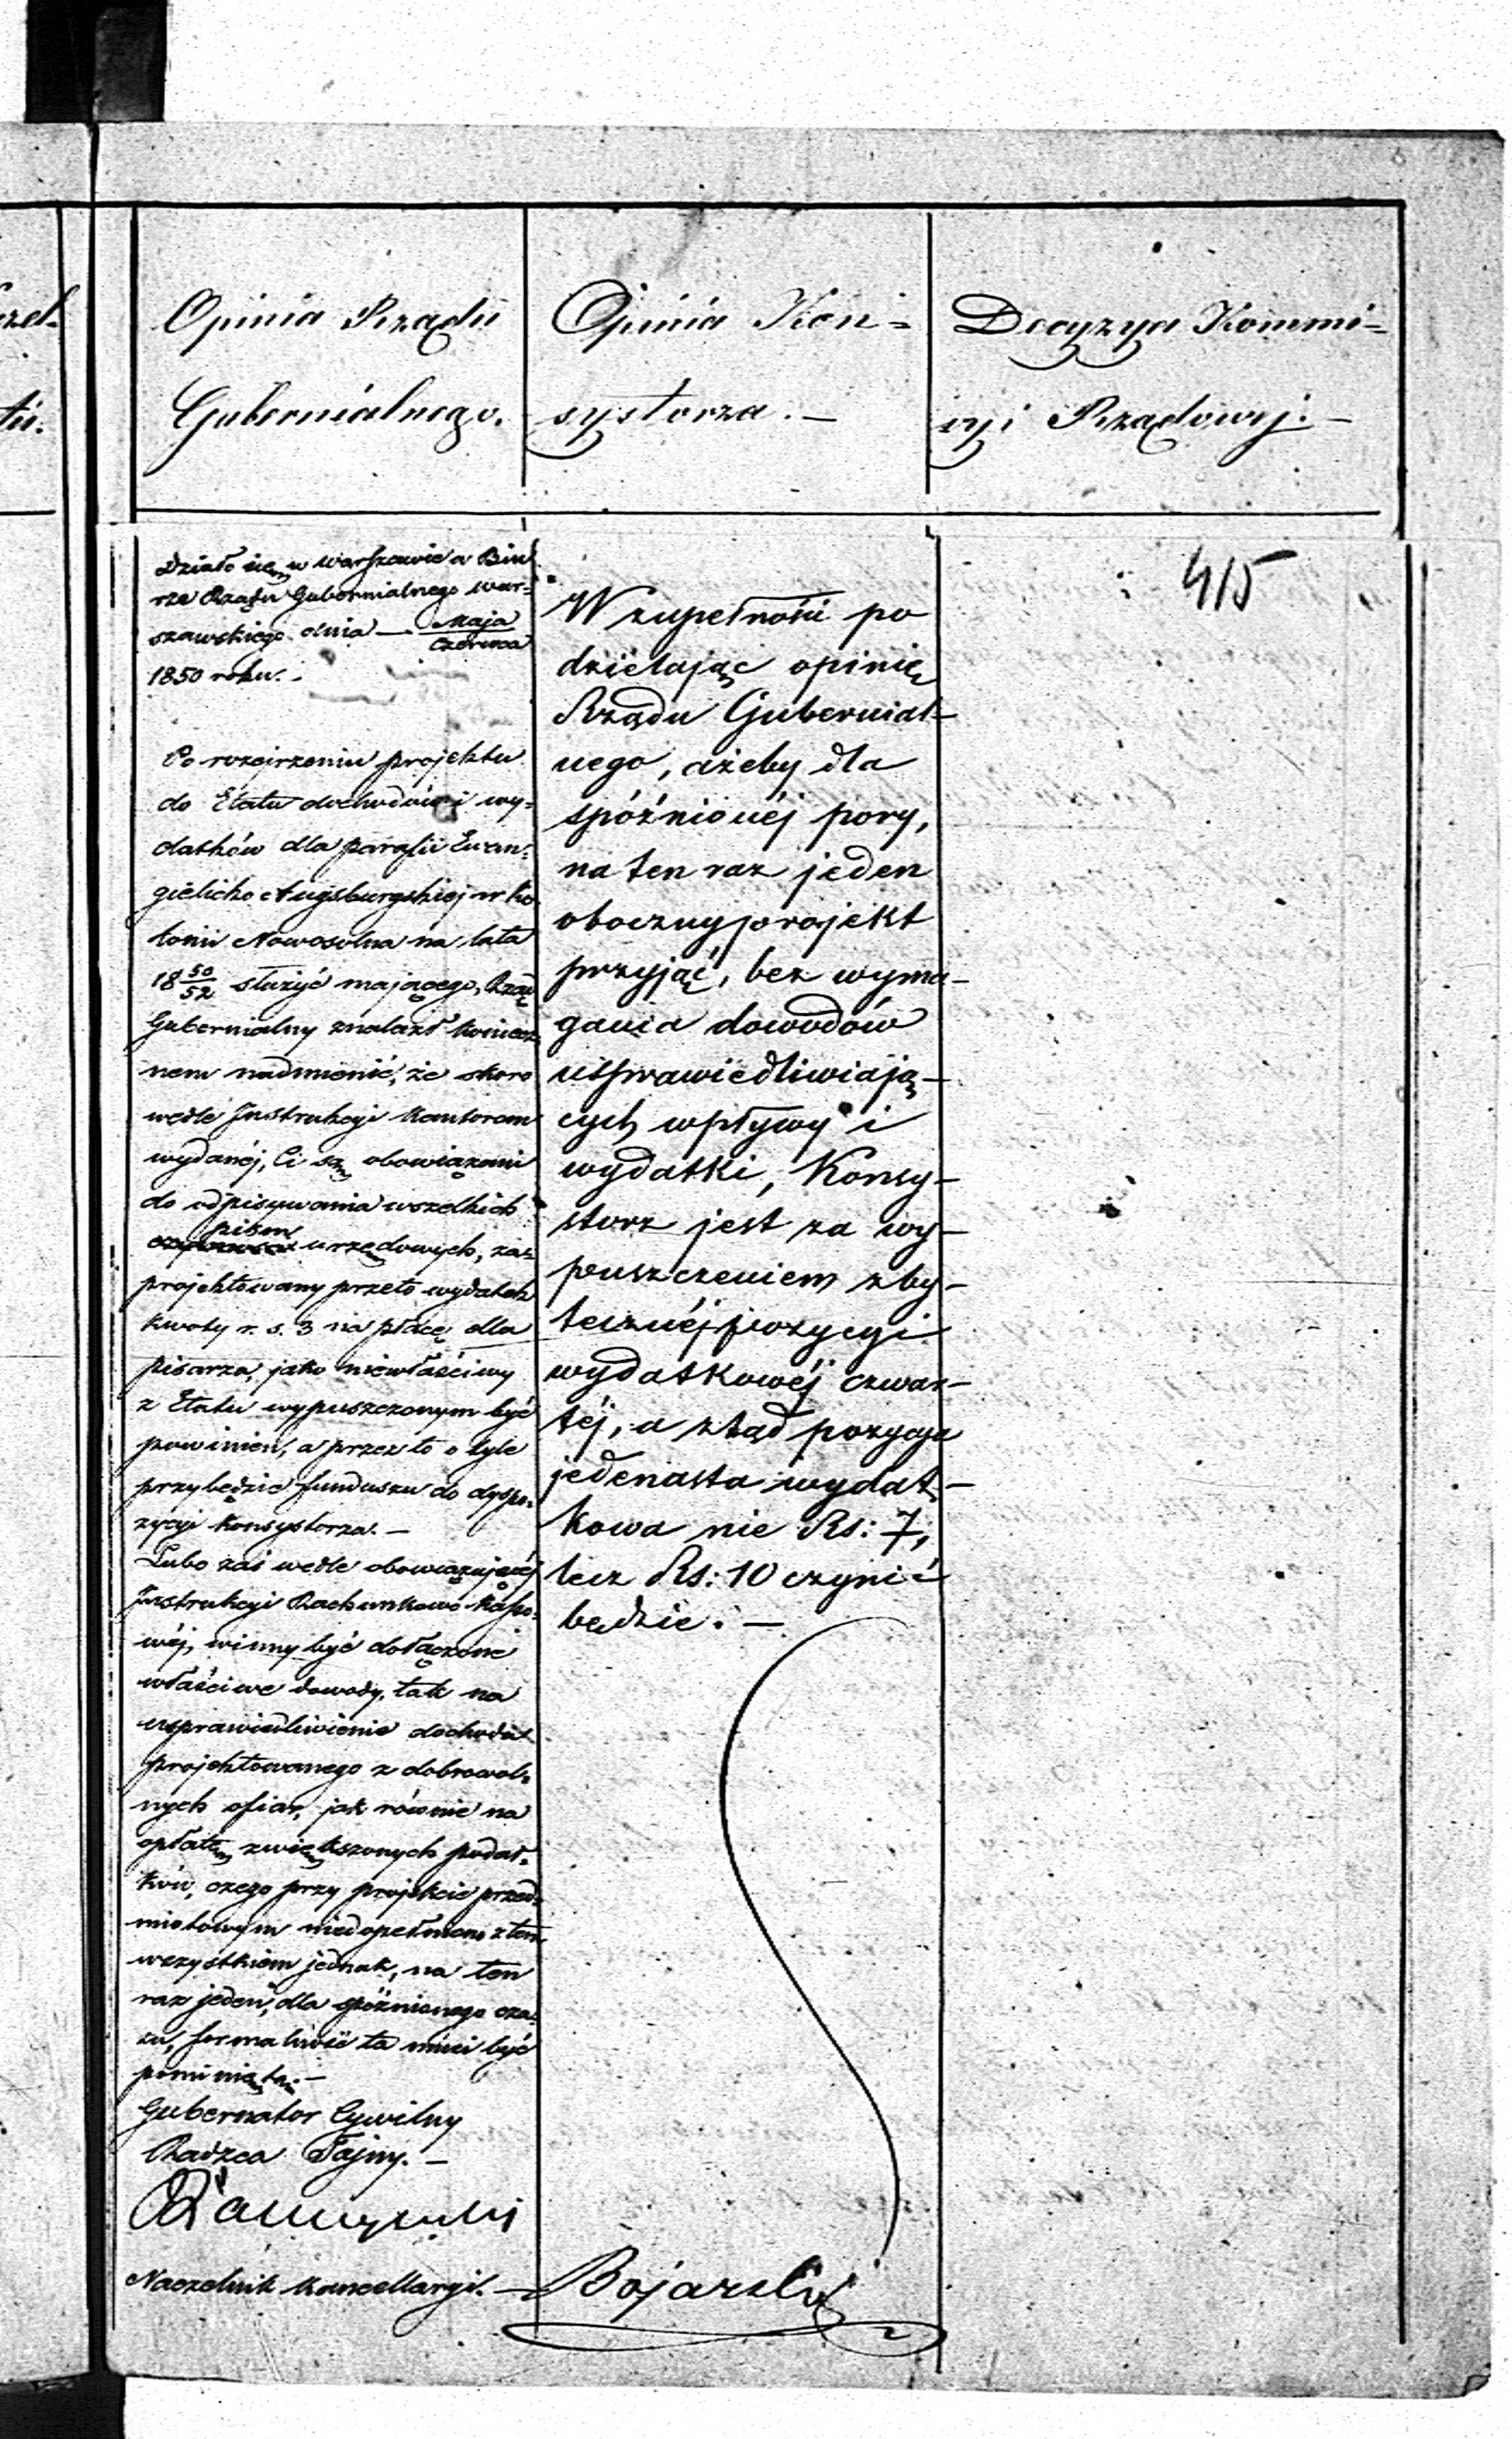 Opinia Rządu
Gubernialnego.
Działo się w Warszawie w Biu
rze Rządu Gubernialnego War=
szawskiego dnia — Maja
Czerwca
1850 roku. -
Po rozejrzeniu projektu
do Etatu dochodów i wy=
datków dla parafii Ewan=
gielicko Augsburgskiej w ko
lonii Nowosolna na lata
18 50/52 służyć mającego, Rząd
Gubernialny znalazł koniecz
nem nadmienić, że skoro
wedle Instrukcyi Kantorom
wydanéj, Ci są obowiązani
do odpisywania wszelkich
pism
urzędowych, za=
projektowany przeto wydatek
kwoty r. s. 3 na płacę dla
pisarza, jako niewłaściwy
z Etatu wypuszczonym być
powinien, a przez to o tyle
przybędzie funduszu do dyspo=
zycyi Konsystorza. —
Lubo zaś wedle obowiązującéj
Instrukcyi Rachunkowo Kasso=
wéj, winny być dołączone
właściwe dowody, tak na
usprawiedliwienie dochodu
projektowanego z dobrowol=
nych ofiar, jak równie na
opłatę zwiększonych podat=
ków, czego przy projekcie przed=
miotowym niedopełniono z tem
wszystkiem jednak, na ten
raz jeden, dla spóźnionego cza=
su, formalność ta musi być
pominiętą. —
Gubernator Cywilny
Radzca Tajny. —
Naczelnik Kancellaryi. —
Opinia Kon=
systorza. —
W zupełności po
dzielając opinię
Rządu Gubernial—
nego, ażeby dla
spóźnionéj pory,
na ten raz jeden
oboczny projekt
przyjąć, bez wyma—
gania dowodów
usprawiedliwiają—
cych wpływy i
wydatki, Konsy—
storz jest za wy—
puszczeniem zby—
tecznéj pozycyi
wydatkowéj czwar—
téj, a ztąd pozycya
jedenasta wydat—
kowa nie Rs: 7,
lecz Rs: 10 czynić
będzie. —
Bojarski
Decyzya Kommi=
syi Rządowej. —
415